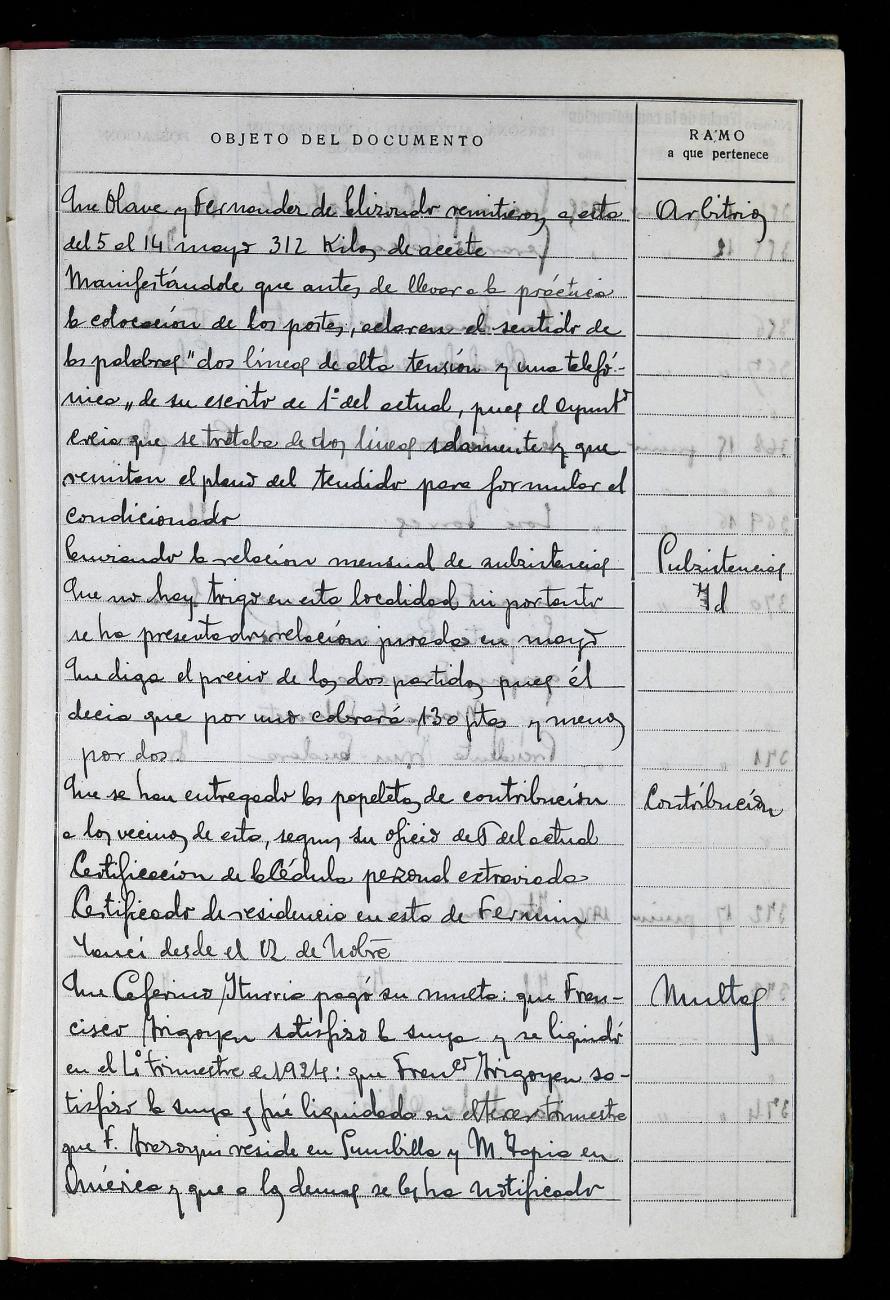 OBJETO DEL DOCUMENTO
RAMO
a que pertenece
Que Olave y Fernandez de Elizondo remitieron a esta
Arbitrios
del 5 al 14 mayo 312 Kilos de aceite
Manifestándole que antes de llevar a la práctica
la colocación de los postes, aclaren el sentido de
las palabras "dos líneas de alta tensión y una telefó-
nica" de su escrito de 1º del actual, pues el Ayuntº
creia que se trataba de dos lineas solamente y que
remitan el plano del tendido para formular el
condicionado
Enviando la relación mensual de subsistencias
Subsistencias
Que no hay trigo en esta localidad ni por tanto
Id
se ha presentado relación jurada en mayo
Que diga el precio de los dos partidos pues él
decia que por uno cobrará 130 ptas y menos
por dos.
Que se han entregado las papeletas de contribución
Contribución
a los vecinos de esta, segun su oficio de 5 del actual
Certificación de la Cédula personal extraviada
Certificado de residencia en esta de Fermin
desde el 12 de Nobre
Que Ceferino Iturria pagó su multa: que Fran-
Multas
cisco Irigoyen satisfizo la suya y se liquidó
en el 1º trimestre de 1924: que Franco Irigoyen sa-
tisfizo la suya y fué liquidada en el tercer trimestre
que F. reside en Sumbilla y M. Tapia en
América y que a los demas se les ha notificado